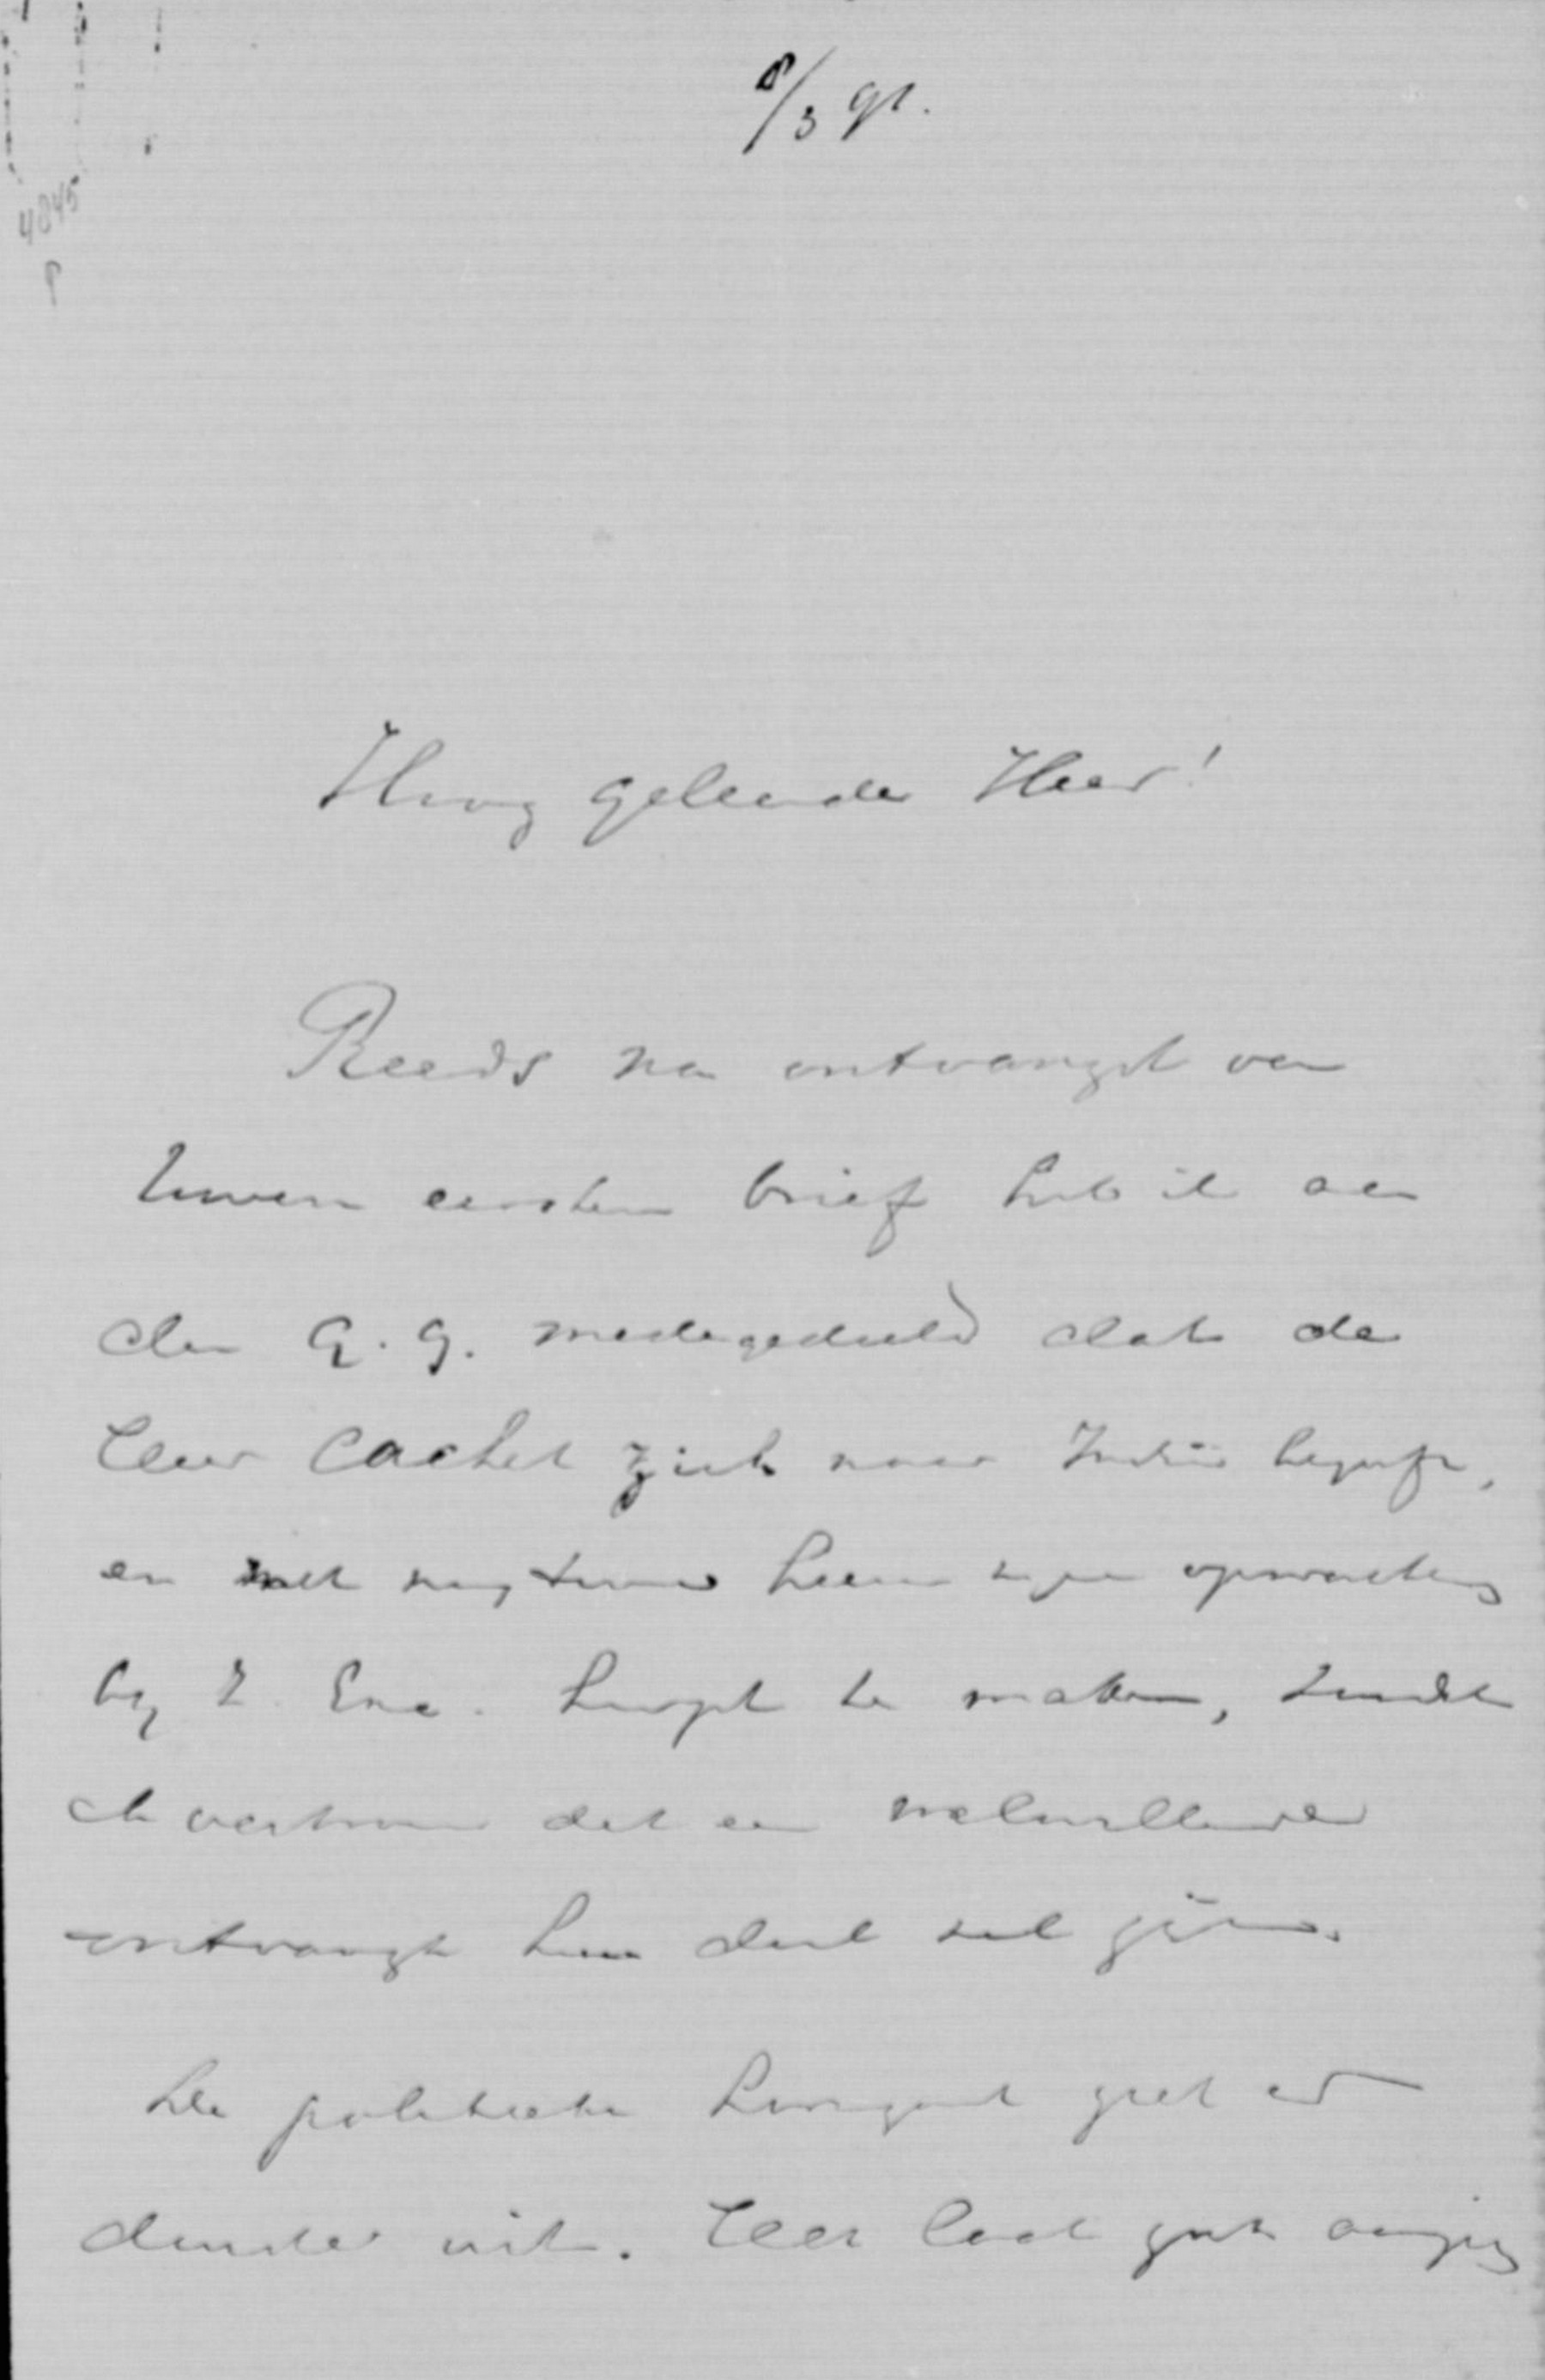 8/3 91.
4845
P
Hoog geleerde Heer!
Reeds na ontvangst van
Uwen eersten brief heb ik aan
den G.G. medegedeeld dat de
Heer Cachet zich naar Indië begeeft,
en met zijn opwachting
bij Z. Exc. hoopt te maken, zoodat
ik vertrouw dat een welwillende
ontvangst hem deel zal zijn.
De politieke horizont ziet er
donker uit. Het laat zich